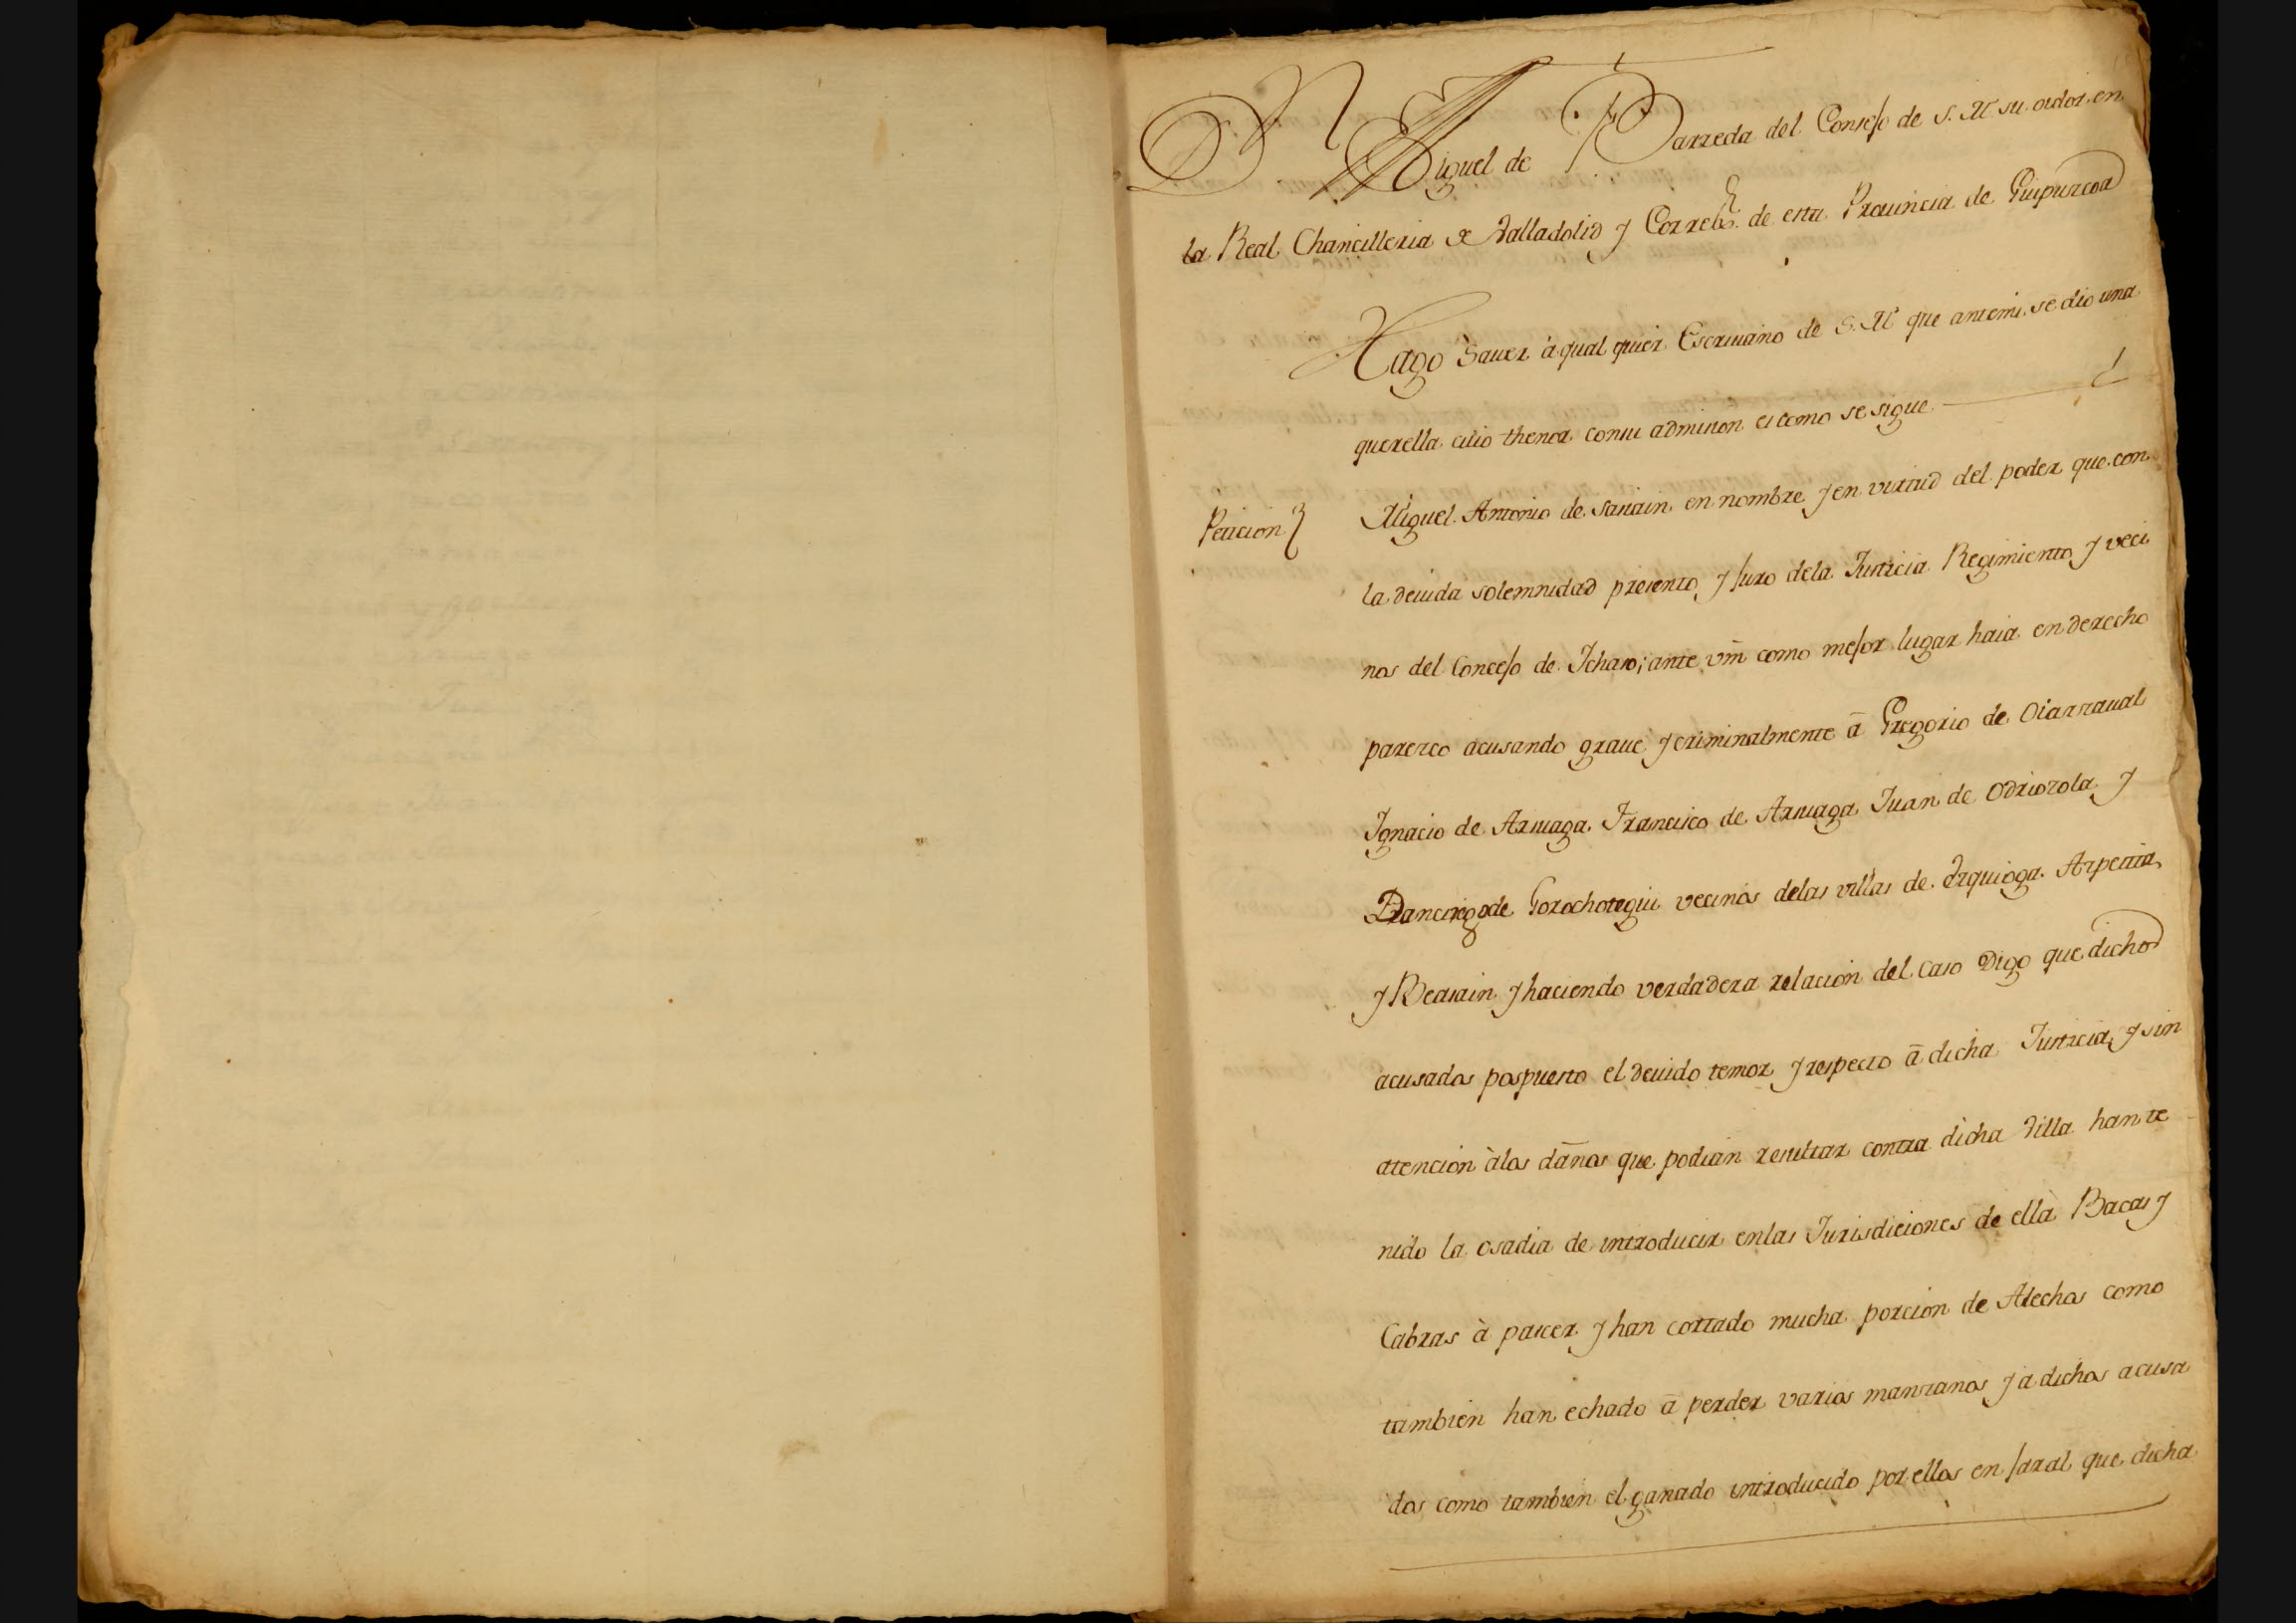 Dn Miguel de Barreda del Consejo de S. M. su oidor en
la Real Chancilleria de Valladolid y Corregor. de esta Prouincia de Guipuzcoa
Hago Sauer à qual quier Escriuano de S. M. que antemi se dio una
querella cuio thenor con su admision es como se sigue
Peticion Miguel Antonio de Sasiain en nombre y en virtud del poder que con
la deuida solemnidad presento, y juro dela Justicia Regimiento y veci
nos del Concejo de Ichaso; ante vm̃ como mejor lugar haia en derecho
parezco acusando graue y criminalmente ā Gregorio de Oiarzaual
Ignacio de Arruaga. Francisco de Arruaga Juan de Odriozola y
de Gorochotegui vecinos delas villas de Ezquioga. Azpeitia
y Beasain y haciendo verdadera relacion del caso Digo que dichos
acusados pospuesto el deuido temor y respecto ā dicha Justicia, y sin
atencion àlos dānos que podian resultar contra dicha Villa han te
nido la osadia de introducir enlas Jurisdiciones de ella Bacas y
Cabras à pascer y han cortado mucha porcion de Alechos como
tambien han echado ā perder varios manzanos y a dichos acusa
dos como tambien el ganado introducido por ellos en jaral que dicha